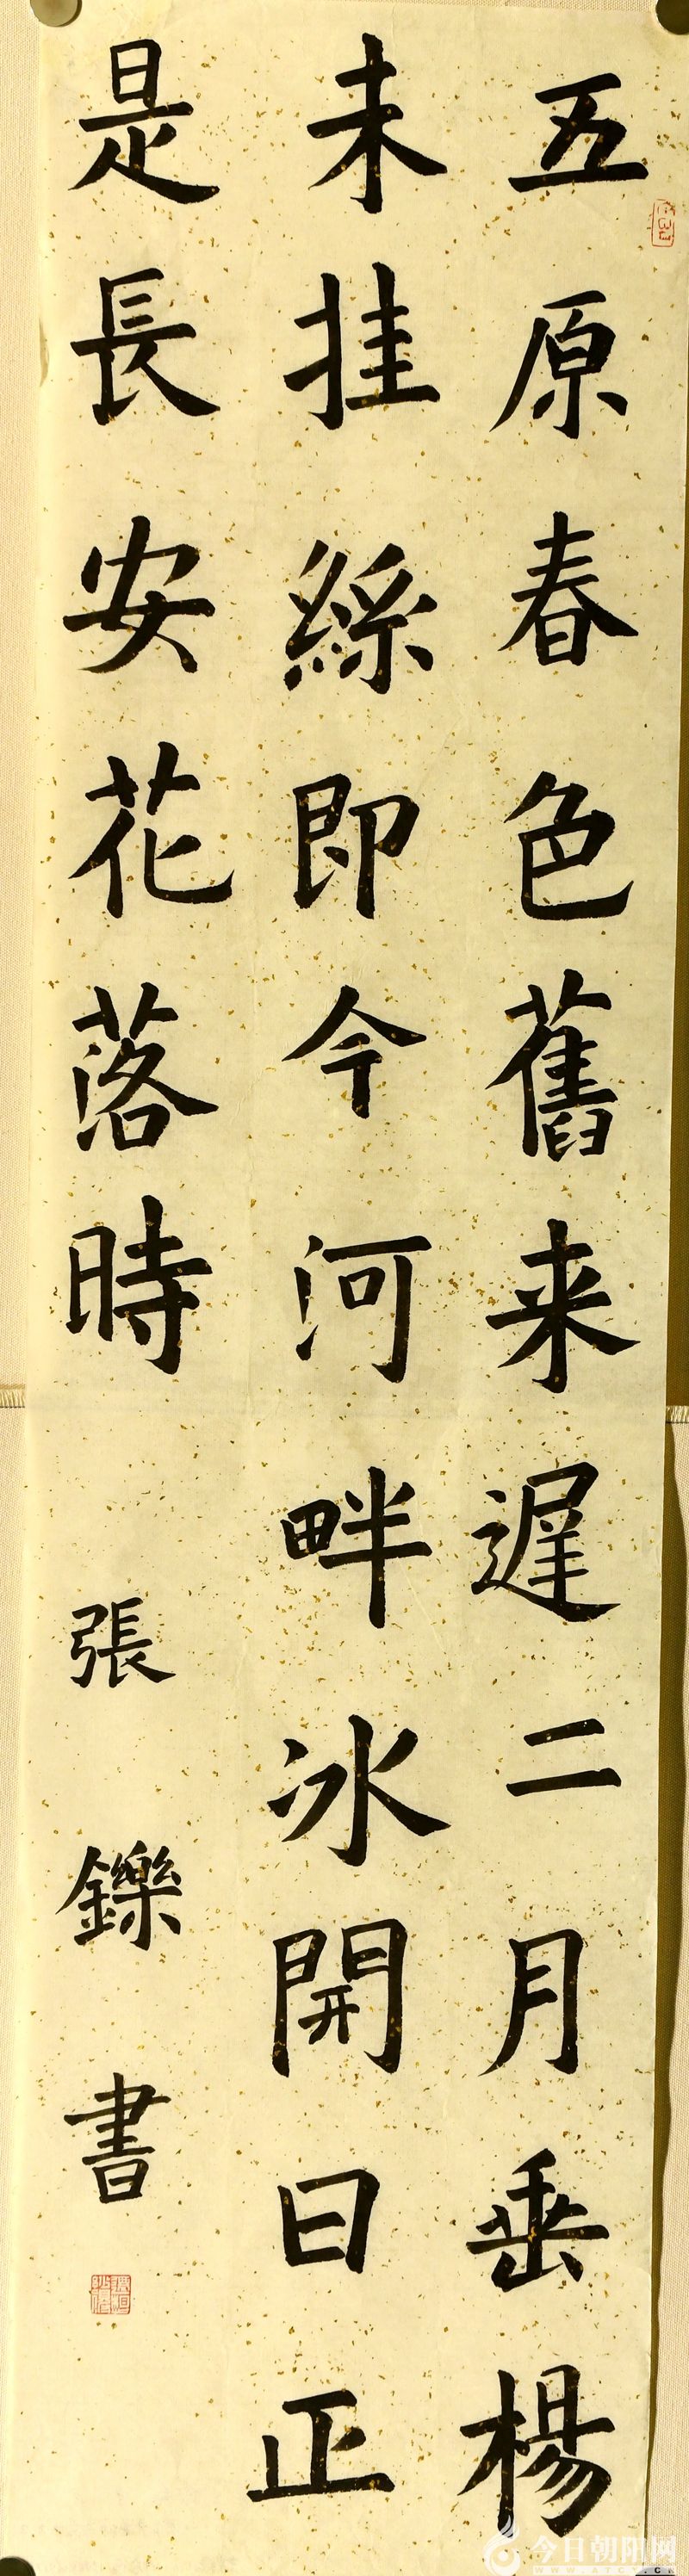 五原春色舊来遲二月垂楊
未挂絲即今河畔冰開日正
是長安花落時
張鑠書
今日朝阳网